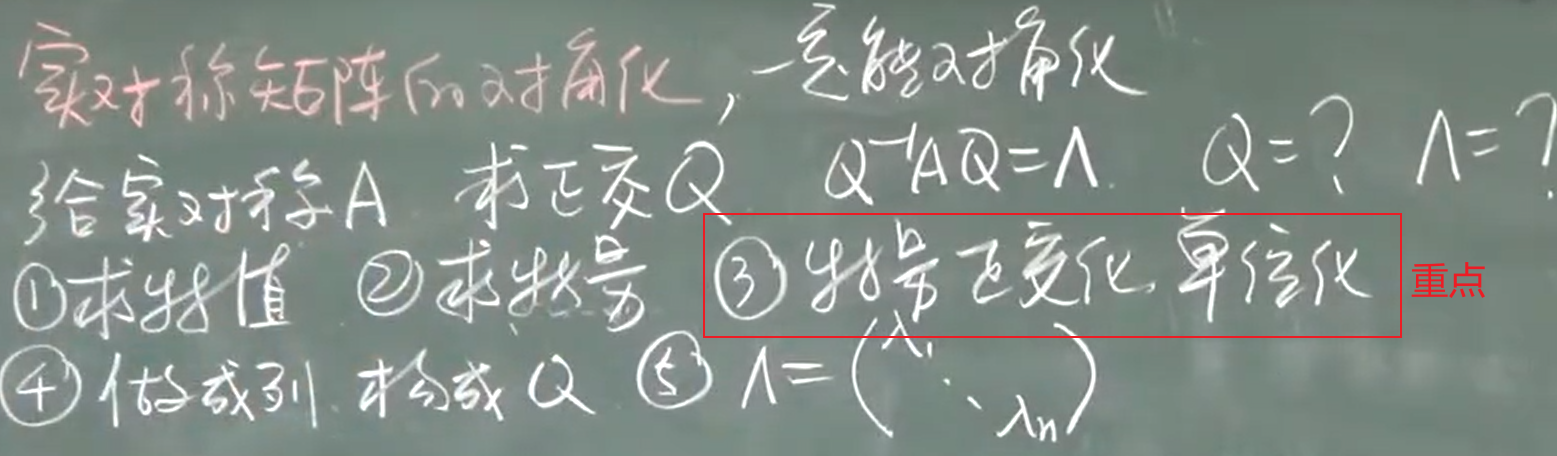 实对称矩阵的对角化，一定能对角化
给实对称A 求正交Q Q⁻¹AQ=Λ. Q=? Λ=?
①求特值 ②求特量 ③特量正交化.单位化 重点
④做成列.构成Q ⑤Λ=(λ₁ ⋱ λₙ)